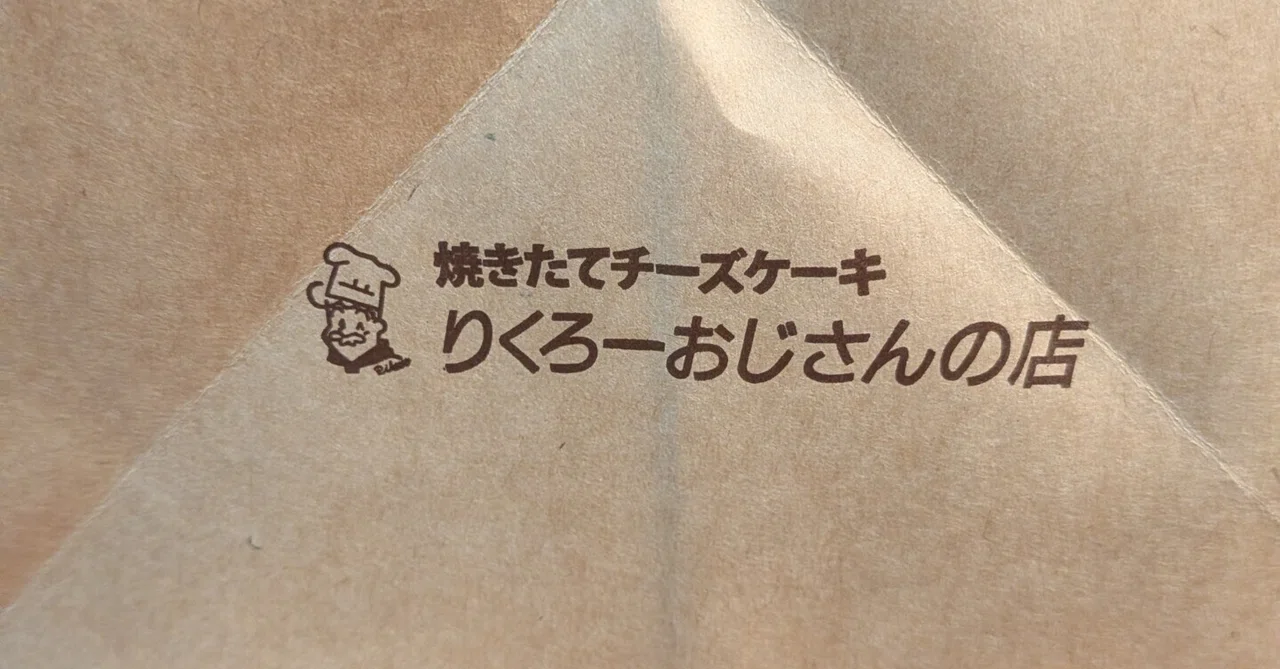 焼きたてチーズケーキ
りくろーおじさんの店